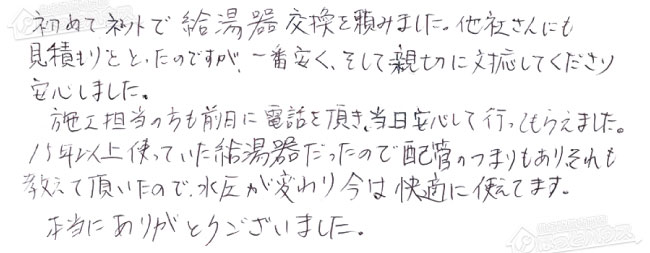 初めてネットで給湯器交換を頼みました。他社さんにも
見積もりをとったのですが、一番安く、そして親切に対応してくださり
安心しました。
施工担当の方も前日に電話を頂き、当日安心して行ってもらえました。
15年以上使っていた給湯器だったので配管のつまりもあり、それも
教えて頂いたので、水圧が変わり今は快適に使えてます。
本当にありがとうございました。